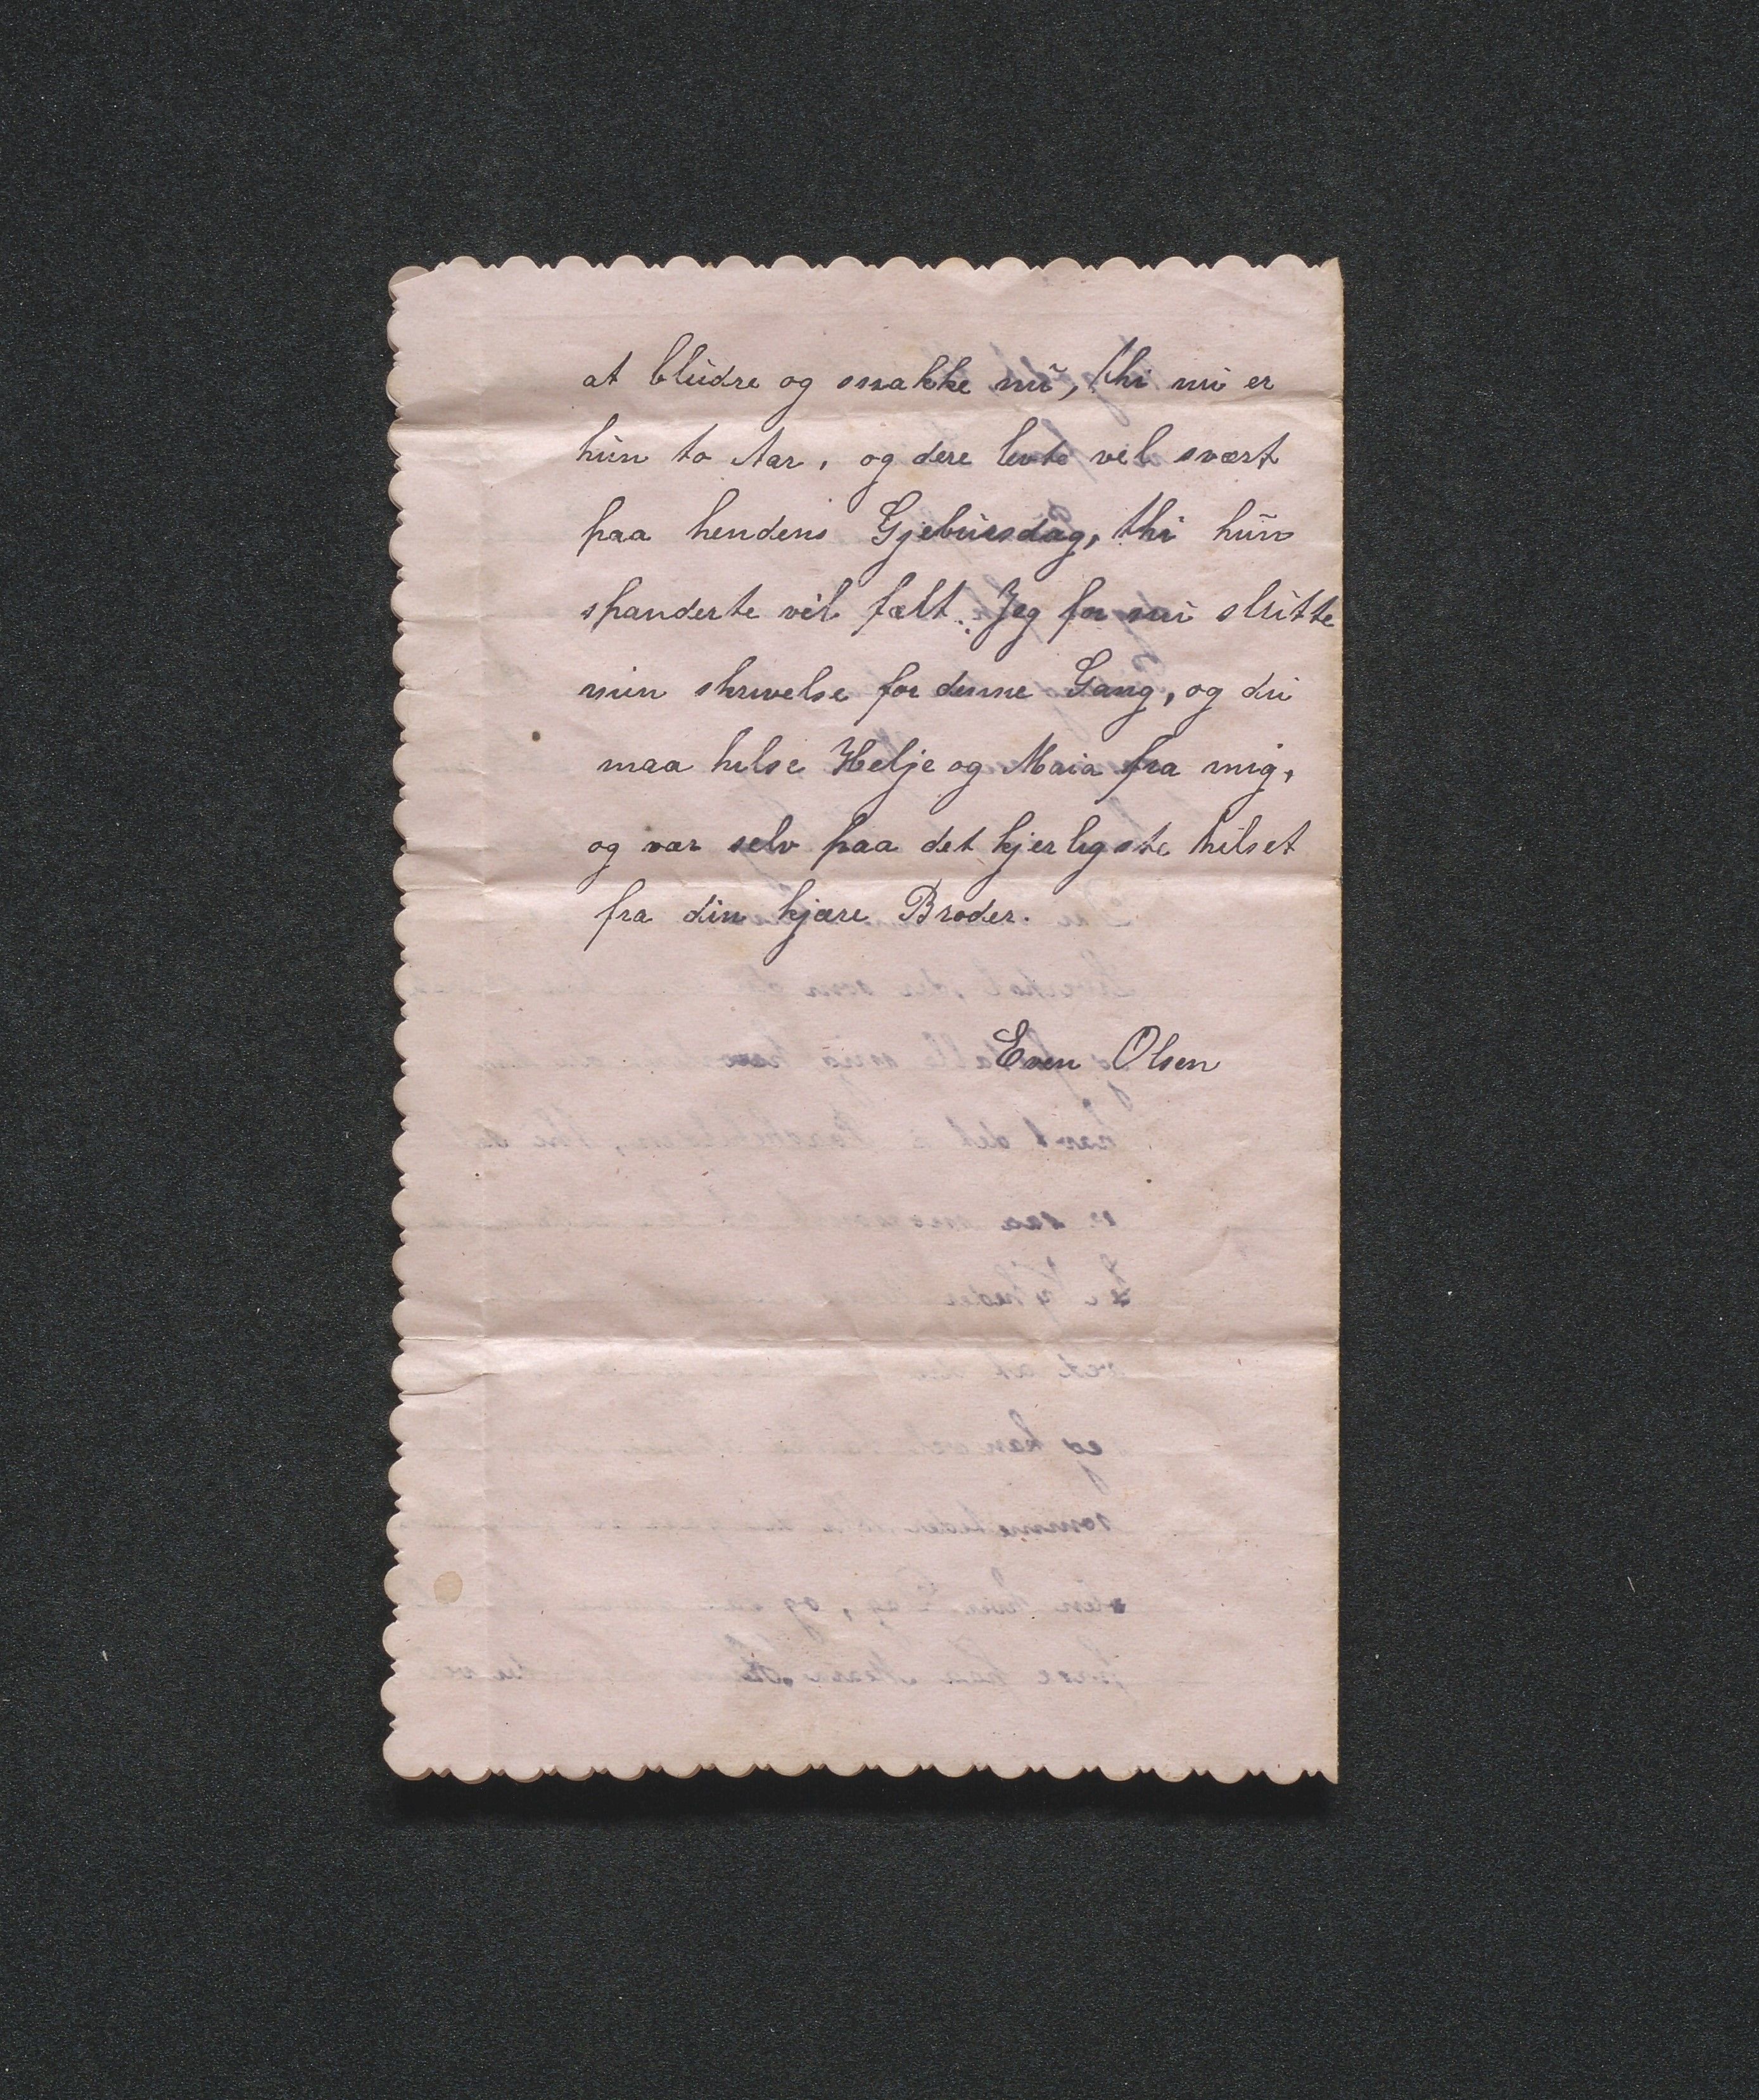 at bludre og snakke nu, thi nu er
hun to Aar, og dere levte vel svært
paa hendens Gjebursdag, thi hun
spanderte vel fælt. Jeg for nu slutte
min skrivelse for denne Gang, og du
maa helse Helje og Maia fra mig,
og vær selv paa det kjerligste hilset
fra din kjære Broder.
Even Olsen